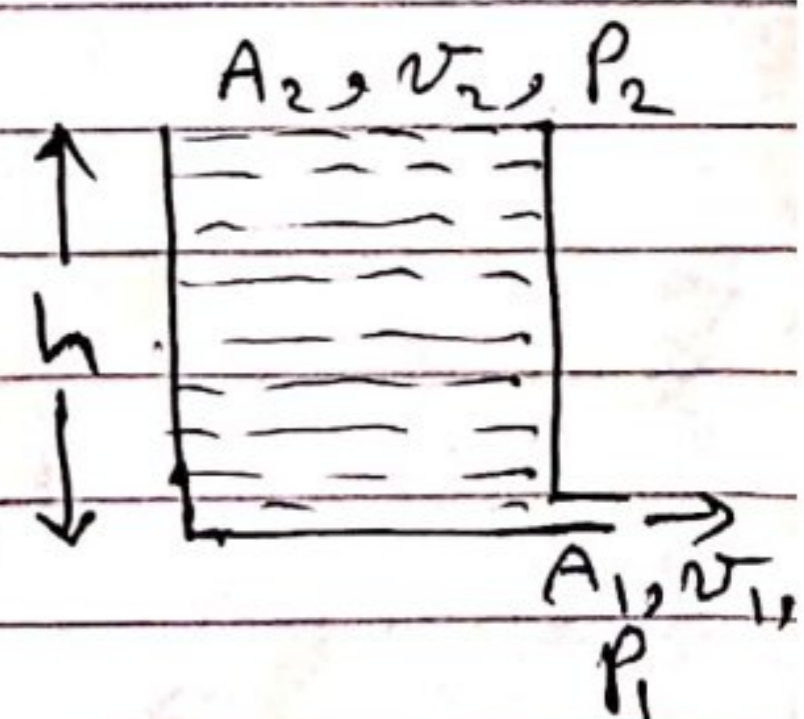 A₂, v₂, P₂
h
A₁, v₁,
P₁